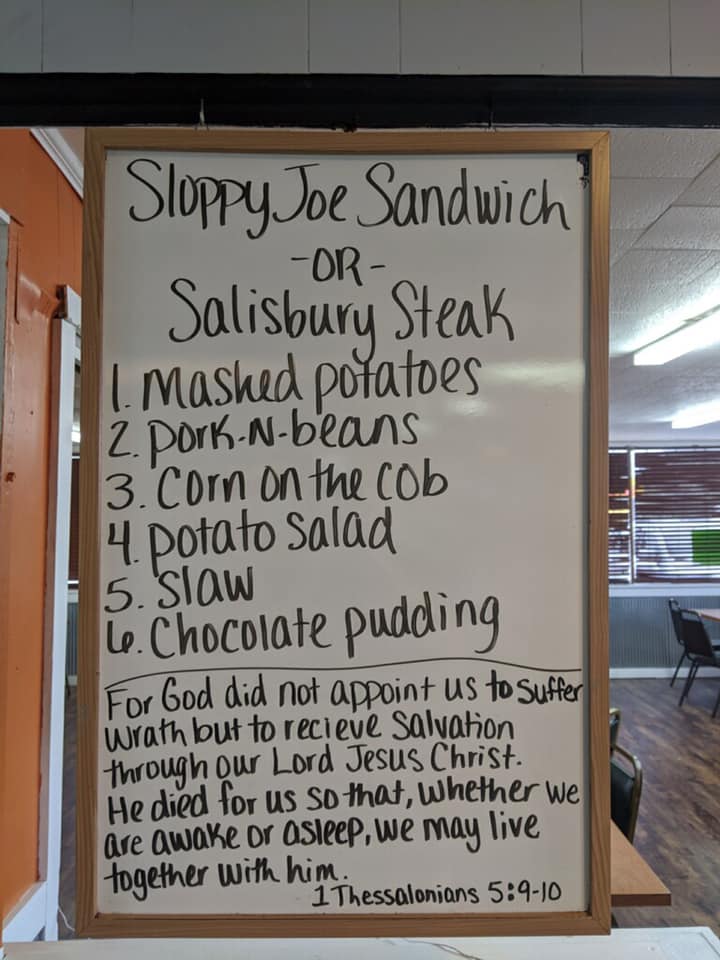 Sloppy Joe Sandwich
-OR-
Salisbury Steak
1. mashed potatoes
2. pork-N-beans
3. Corn on the cob
4. potato salad
5. slaw
6. Chocolate pudding
For God did not appoint us to suffer
wrath but to recieve salvation
through our Lord Jesus Christ.
He died for us so that, whether we
are awake or asleep, we may live
together with him.
1 Thessalonians 5:9-10